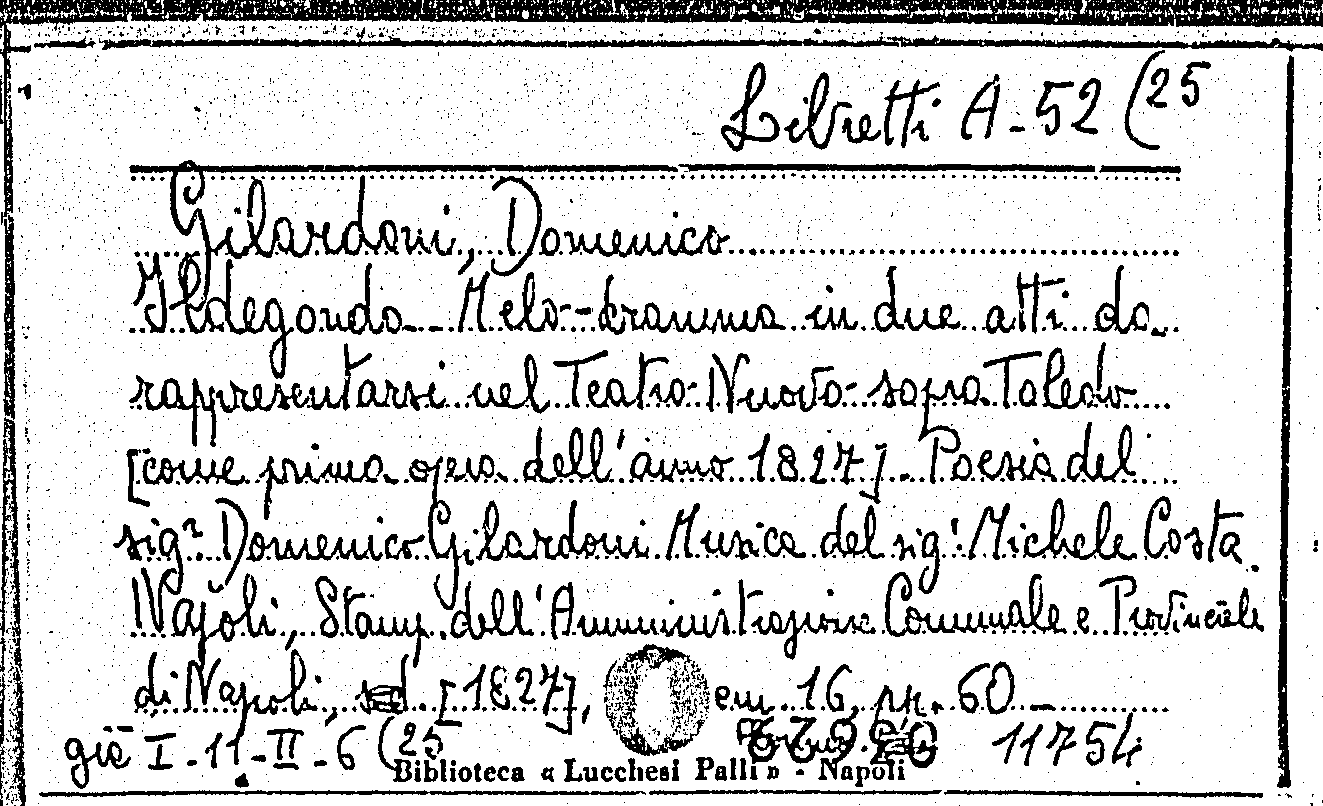 Libretti A-52 (25
Gilardoni, Domenico
Ildegonda - Melo-dramma in due atti da
rappresentarsi nel Teatro Nuovo sopra Toledo
[come prima opera dell'anno 1827]. Poesia del
sigr. Domenico Gilardoni Musica del sig! Michele Costa.
Napoli, Stamp. dell'Amministrazione Comunale e Provinciale
di Napoli, [1827], cm. 16, pp. 60 -
già I-11-II-6 (25
11754
Biblioteca « Lucchesi Palli » - Napoli